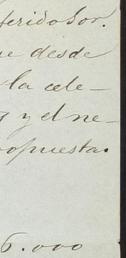 ferido Sor.
ue desde
la cele-
a y el ne-
opuesta.
6.000